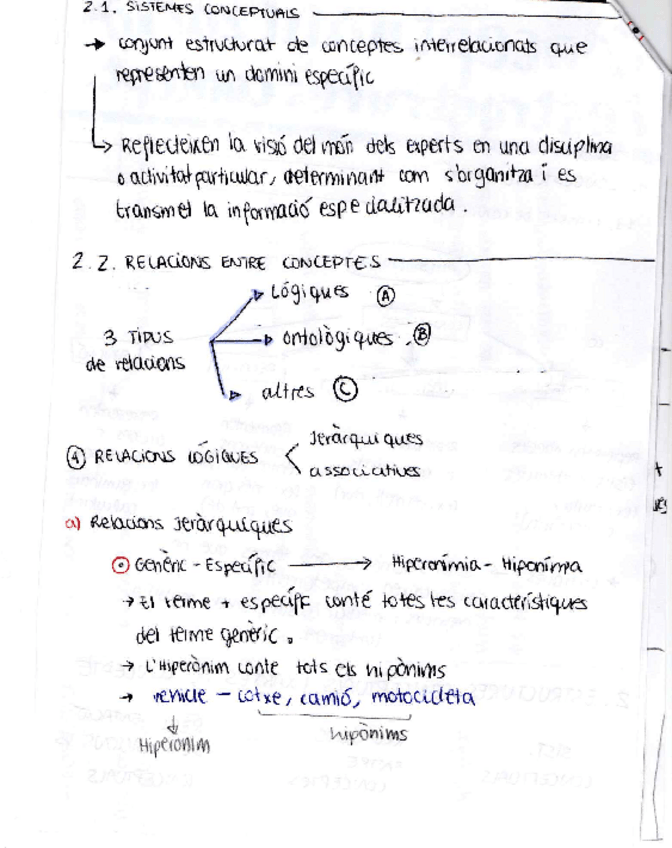 2.1. SISTEMES CONCEPTUALS
→ conjunt estructurat de conceptes interrelacionats que
representen un domini específic
↳ Reflecteixen la visió del món dels experts en una disciplina
o activitat particular, determinant com s'organitza i es
transmet la informació especialitzada.
2.2. RELACIONS ENTRE CONCEPTES
Lógiques Ⓐ
3 TIPUS
de relacions
ontològiques Ⓑ
altres Ⓒ
RELACIONS LÒGIQUES
Jeràrquiques
associatives
a) Relacions Jeràrquiques
Genèric - Específic → Hiperonímia - Hiponímia
→ El terme + específic conté totes les característiques
del terme genèric.
→ L'Hiperònim conte tots els hipònims
→ vehicle - cotxe, camió, motocicleta
Hiperonim
hipònims